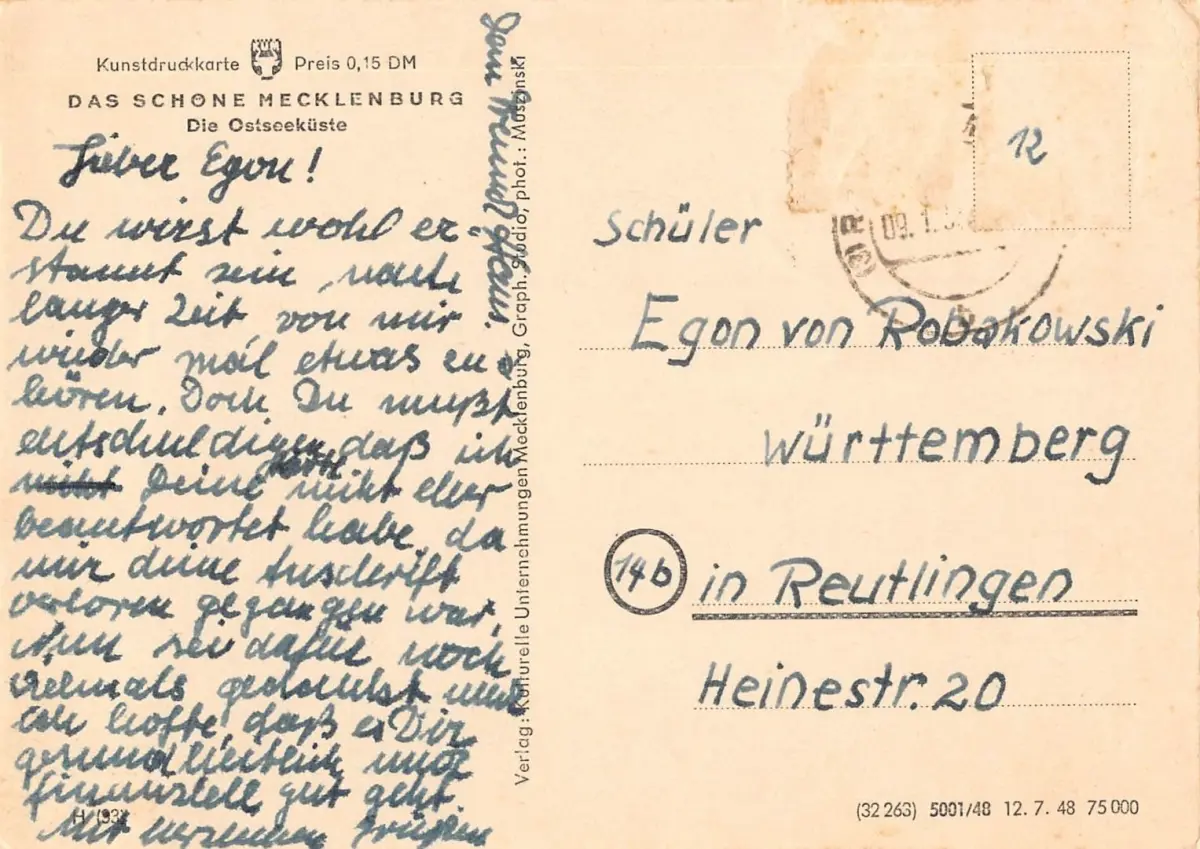 Kunstdruckkarte KUM Preis 0,15 DM
DAS SCHÖNE MECKLENBURG
Die Ostseeküste
Lieber Egon!
Du wirst wohl er-
staunt sein nach
langer Zeit von mir
wieder mal etwas zu
hören. Doch Du mußt
entschuldigen, daß ich
nicht Deine Karte nicht eher
beantwortet habe, da
mir deine Anschrift
verloren gegangen war.
Nun sei dafür noch
vielmals gedankt und
ich hoffe, daß es Dir
gesundheitlich und
finanziell gut geht.
Mit herzlichen Grüßen
Dein Freund Hans.
H (93)
Verlag: Kulturelle Unternehmungen Mecklenburg, Graph. Studio, phot.: Muszynski
12
09.1.
Schüler
Egon von Robakowski
Württemberg
14b in Reutlingen
Heinestr. 20
(32 263) 5001/48 12. 7. 48 75 000